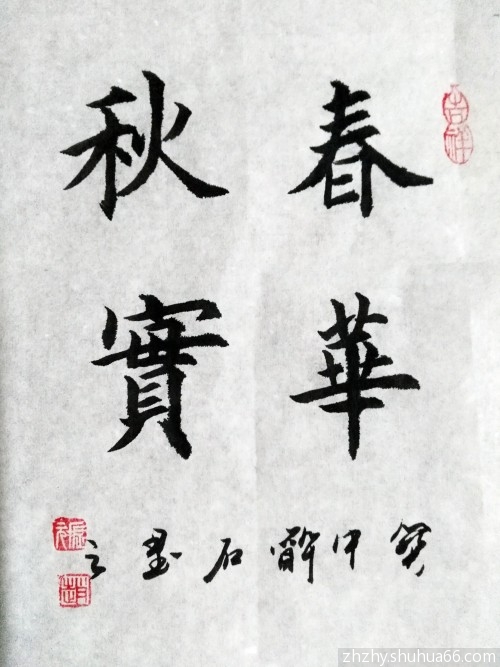 春華
秋實
吉祥
中醉石墨
zhzhyshuhua66.com